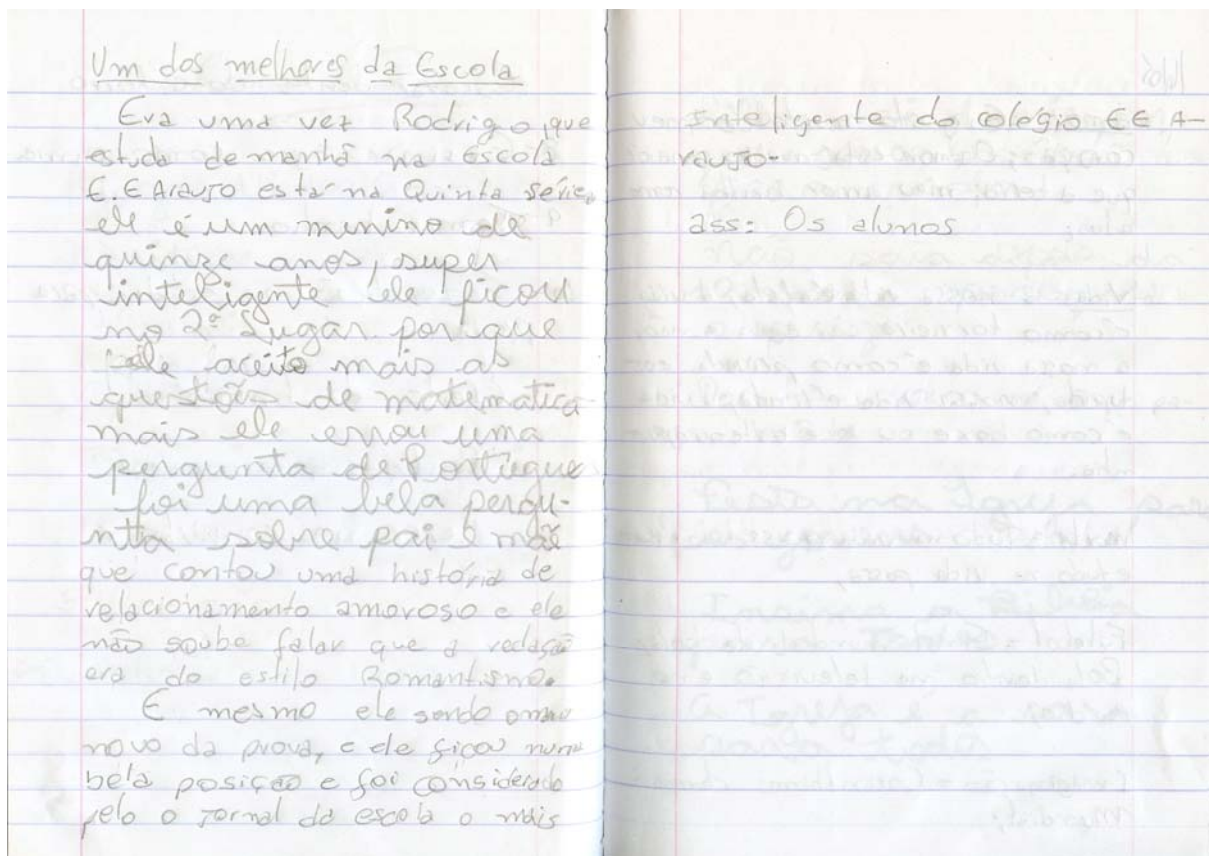 Um dos melhores da Escola
Era uma vez Rodrigo, que
estuda de manhã na escola
E.E Araujo estar na Quinta série,
ele é um minino de
quinze anos, super
inteligente ele ficou
no 2º Lugar porique
ele aceito mais as
questões de matematica
mais ele errou uma
pergunta de Portugue
foi uma bela pergu-
nta sobre pai e mãe
que contou uma história de
relacionamento amoroso e ele
não soube falar que a redação
era do estilo Romantismo.
E mesmo ele sendo omais
novo da prova, e ele ficou numa
bela posição e foi considerado
pelo o jornal da escola o mais
Inteligente do colégio E E A-
raujo.
ass: Os alunos